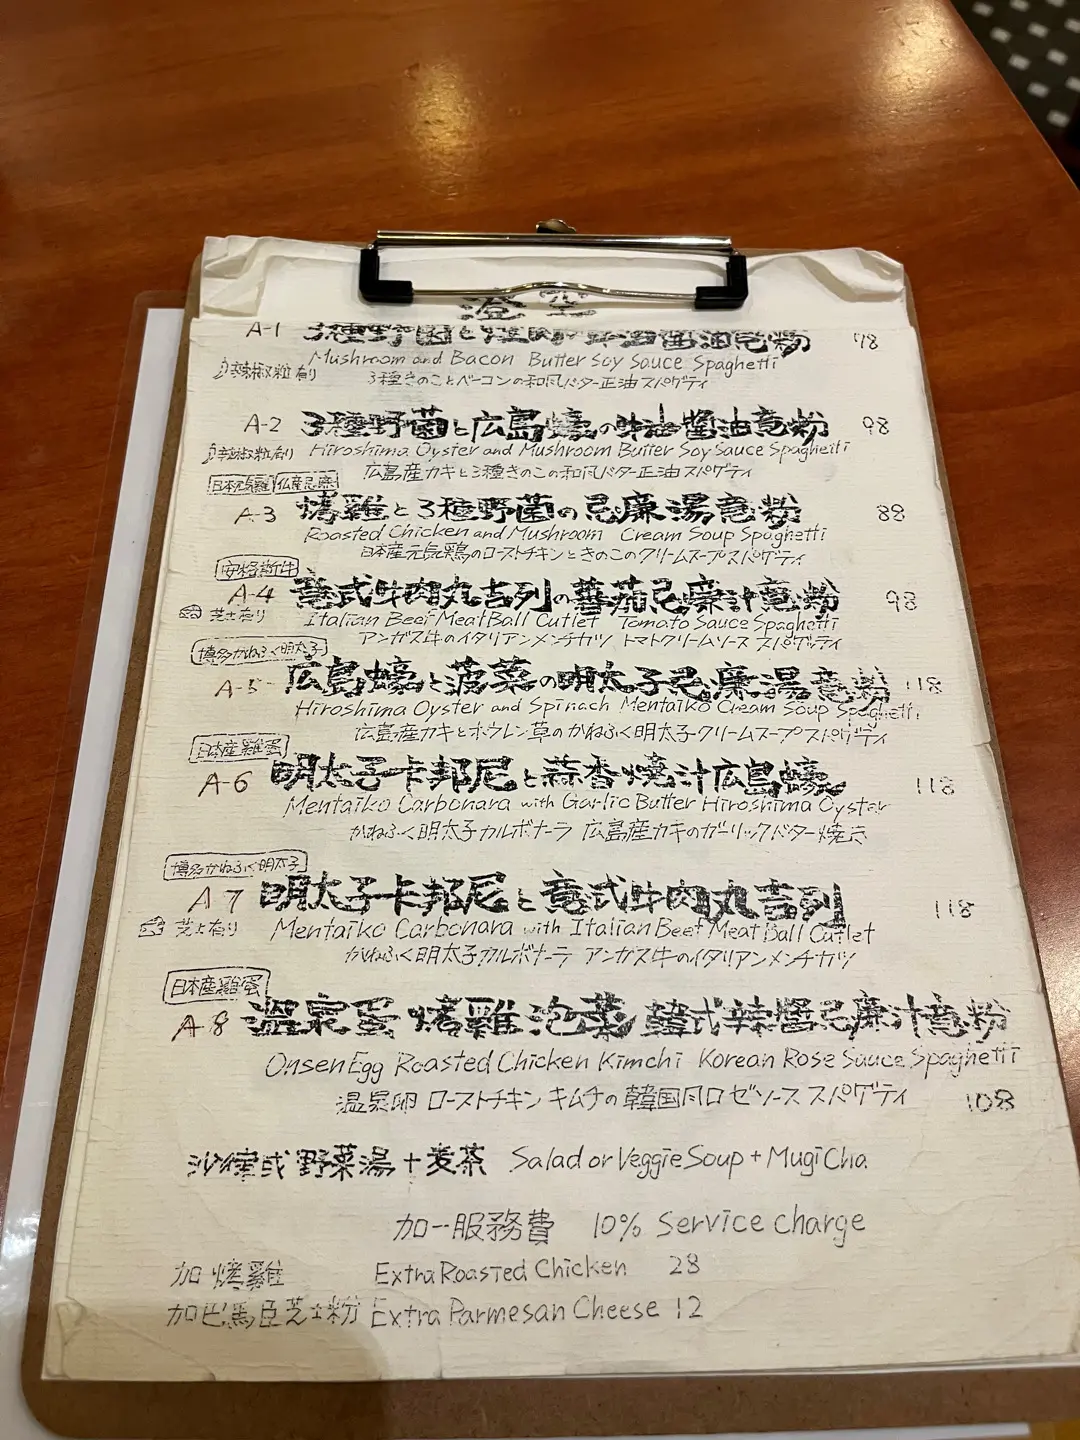 澄空
A-1 3種野菌と煙肉の牛油醬油意粉
Mushroom and Bacon Butter Soy Sauce Spaghetti
辣椒粒有り 3種きのことベーコンの和風バター正油スパゲティ
A-2 3種野菌と広島蠔の牛油醬油意粉 98
Hiroshima Oyster and Mushroom Butter Soy Sauce Spaghetti
辣椒粒有り 広島産カキと3種きのこの和風バター正油スパゲティ
日本元気雞 仏産忌廉
A-3 烤雞と3種野菌の忌廉湯意粉 88
Roasted Chicken and Mushroom Cream Soup Spaghetti
日本産元気鶏のローストチキンときのこのクリームスープスパゲティ
安格斯牛
A-4 意式牛肉丸吉列の蕃茄忌廉汁意粉 98
芝士有り Italian Beef MeatBall Cutlet Tomato Sauce Spaghetti
アンガス牛のイタリアンメンチカツ トマトクリームソース スパゲッティ
博多かねふく明太子
A-5 広島蠔と菠菜の明太子忌廉湯意粉 118
Hiroshima Oyster and Spinach Mentaiko Cream Soup Spaghetti
広島産カキとホウレン草のかねふく明太子クリームスープスパゲティ
日本産雞蛋
A-6 明太子卡邦尼と蒜香燒汁広島蠔 118
Mentaiko Carbonara with Garlic Butter Hiroshima Oyster
かねふく明太子カルボナーラ 広島産カキのガーリックバター焼き
博多かねふく明太子
A7 明太子卡邦尼と意式牛肉丸吉列 118
芝士有り Mentaiko Carbonara with Italian Beef MeatBall Cutlet
かねふく明太子カルボナーラ アンガス牛のイタリアンメンチカツ
日本産雞蛋
A-8 溫泉蛋 烤雞 泡菜 韓式辣醬忌廉汁意粉
Onsen Egg Roasted Chicken Kimchi Korean Rose Sauce Spaghetti
温泉卵 ローストチキン キムチの韓国風ロゼソース スパゲティ 108
沙律或野菜湯+麦茶 Salad or Veggie Soup + MugiCha
加一服務費 10% Service charge
加烤雞 Extra Roasted Chicken 28
加巴馬臣芝士粉 Extra Parmesan Cheese 12